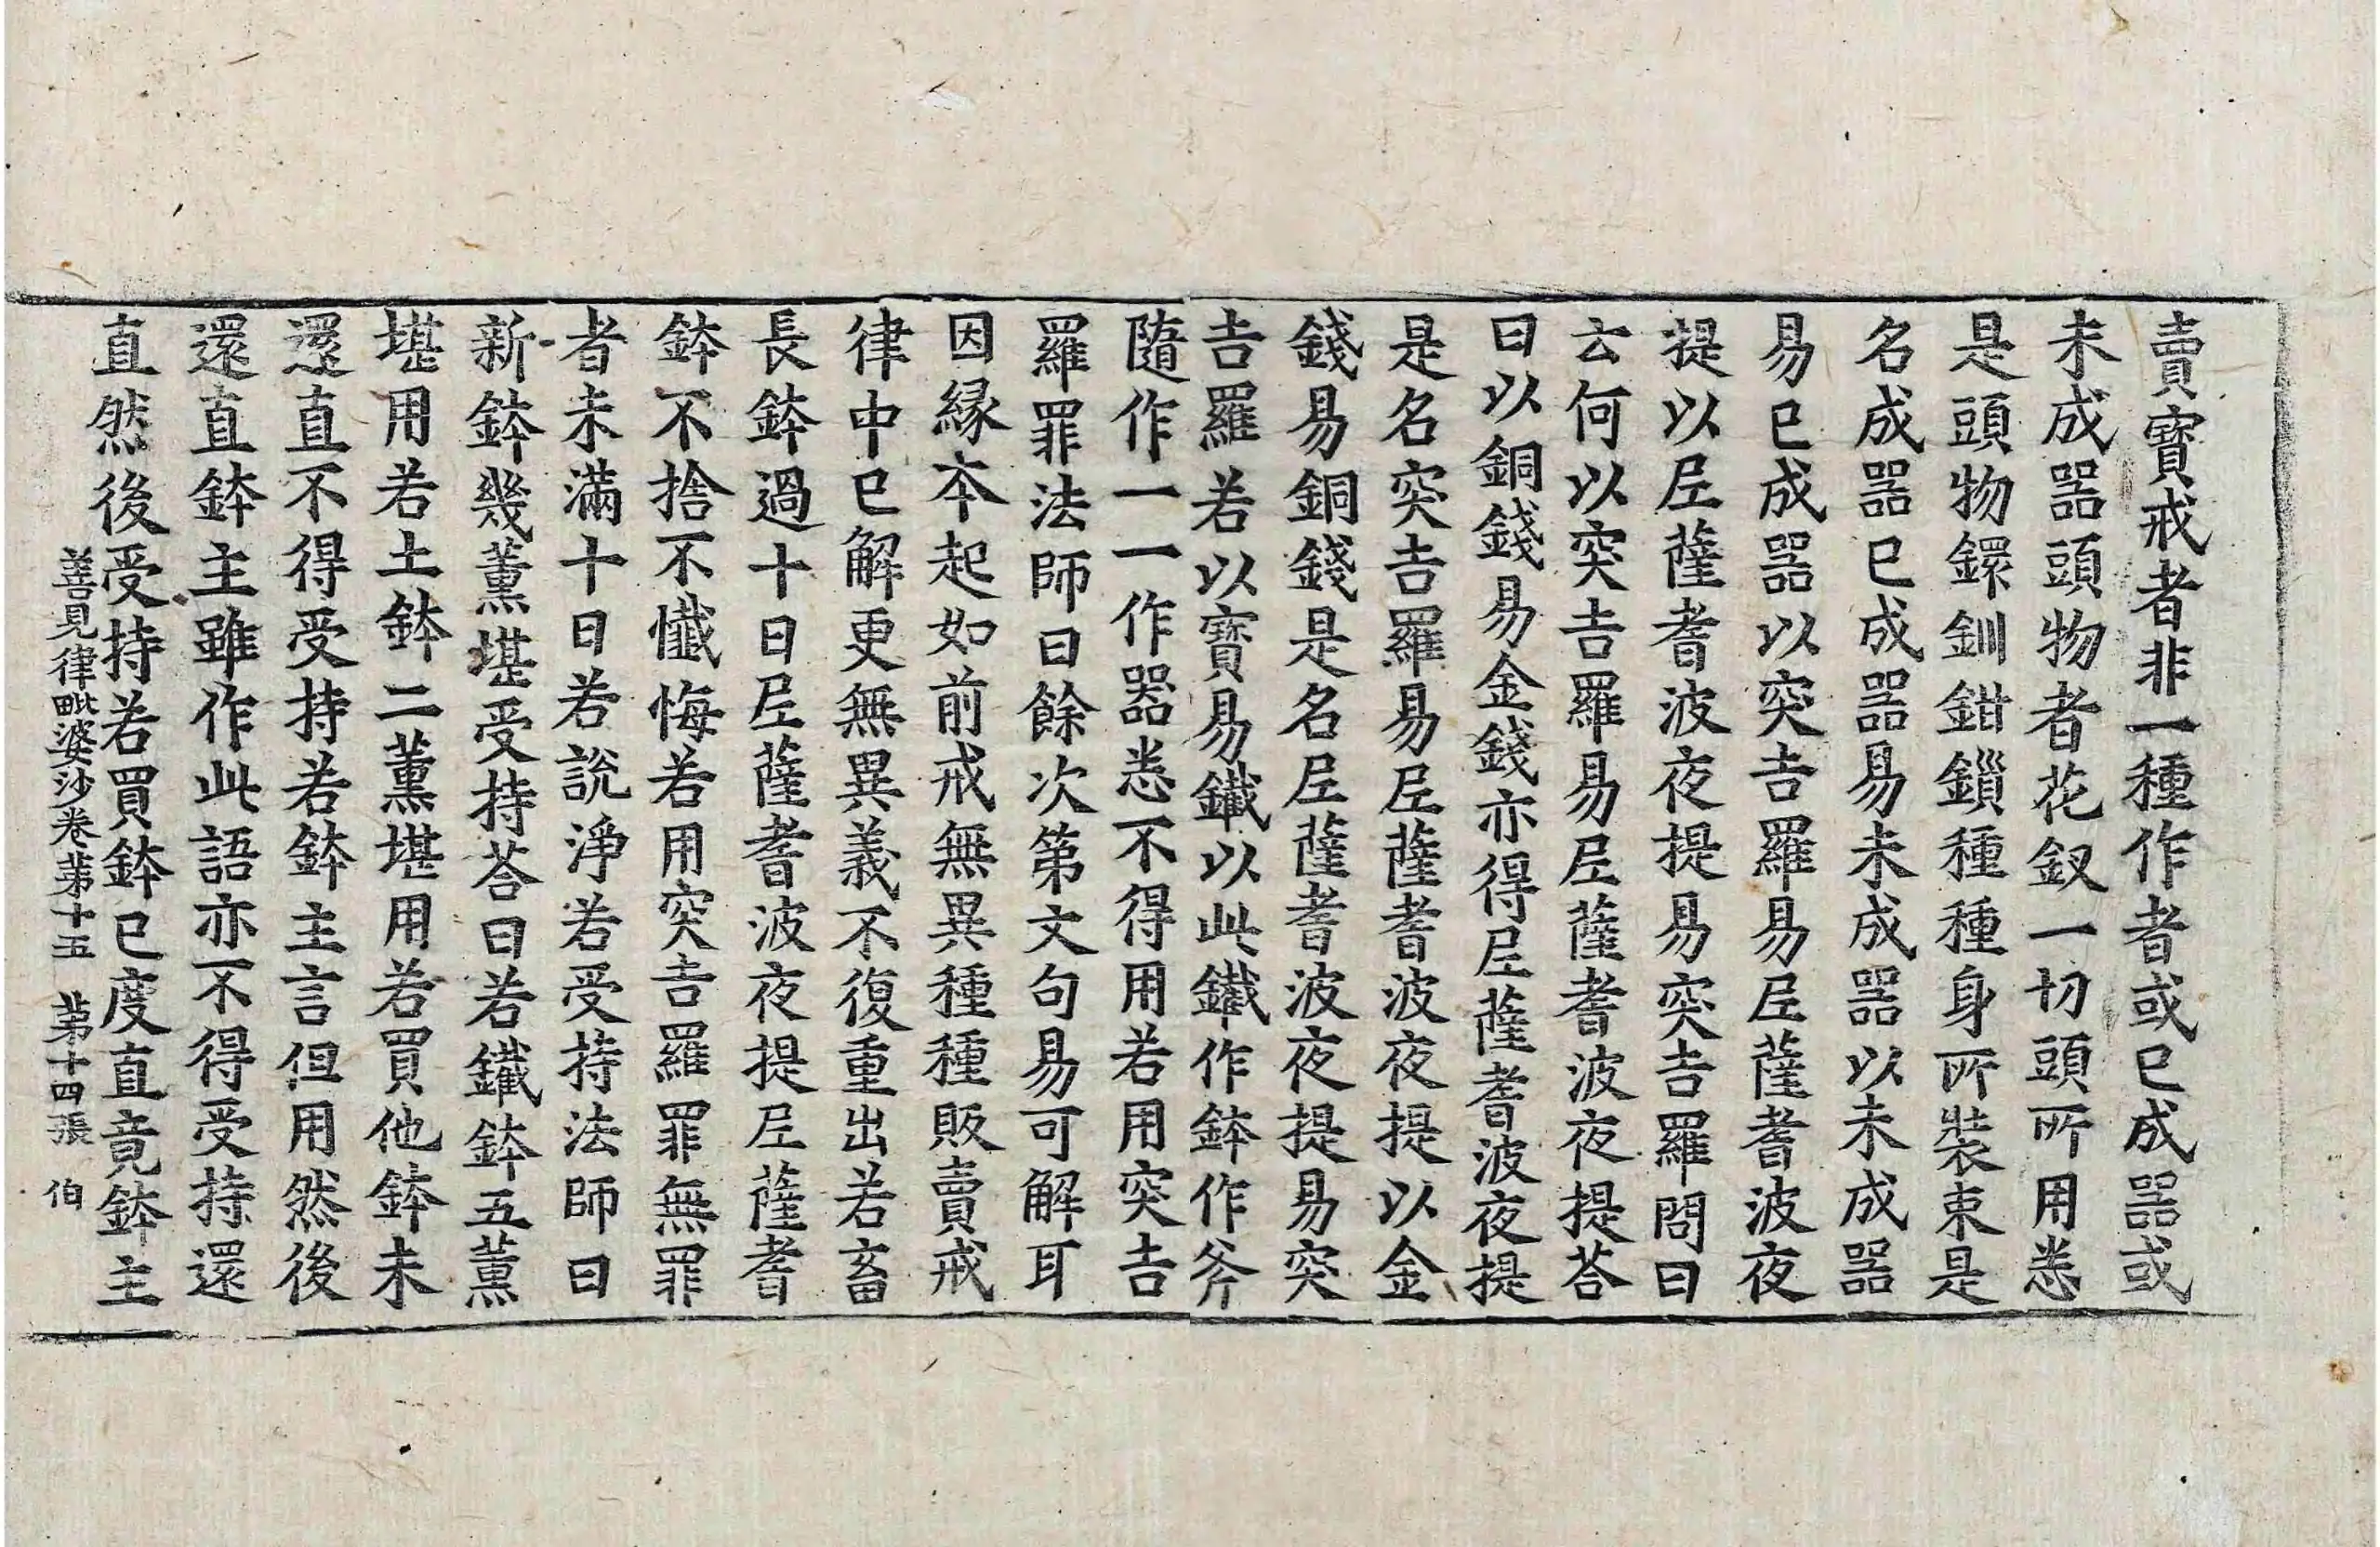 賣寶戒者非一種作者或已成器或
未成器頭物者花釵一切頭所用悉
是頭物鐶釧鉗鎖種種身所裝束是
名成器已成器易未成器以未成器
易已成器以突吉羅易尼薩耆波夜
提以尼薩耆波夜提易突吉羅問曰
云何以突吉羅易尼薩耆波夜提荅
曰以銅錢易金錢亦得尼薩耆波夜提
是名突吉羅易尼薩耆波夜提以金
錢易銅錢是名尼薩耆波夜提易突
吉羅若以寶易鐵以此鐵作鉢作斧
隨作一一作器悉不得用若用突吉
羅罪法師曰餘次第文句易可解耳
因緣本起如前戒無異種種販賣戒
律中已解更無異義不復重出若畜
長鉢過十日尼薩耆波夜提尼薩耆
鉢不捨不懺悔若用突吉羅罪無罪
者未滿十日若說淨若受持法師曰
新鉢幾薰堪受持荅曰若鐵鉢五薰
堪用若土鉢二薰堪用若買他鉢未
還直不得受持若鉢主言但用然後
還直鉢主雖作此語亦不得受持還
直然後受持若買鉢已度直竟鉢主
善見律毗婆沙卷苐十五 苐十四張 伯